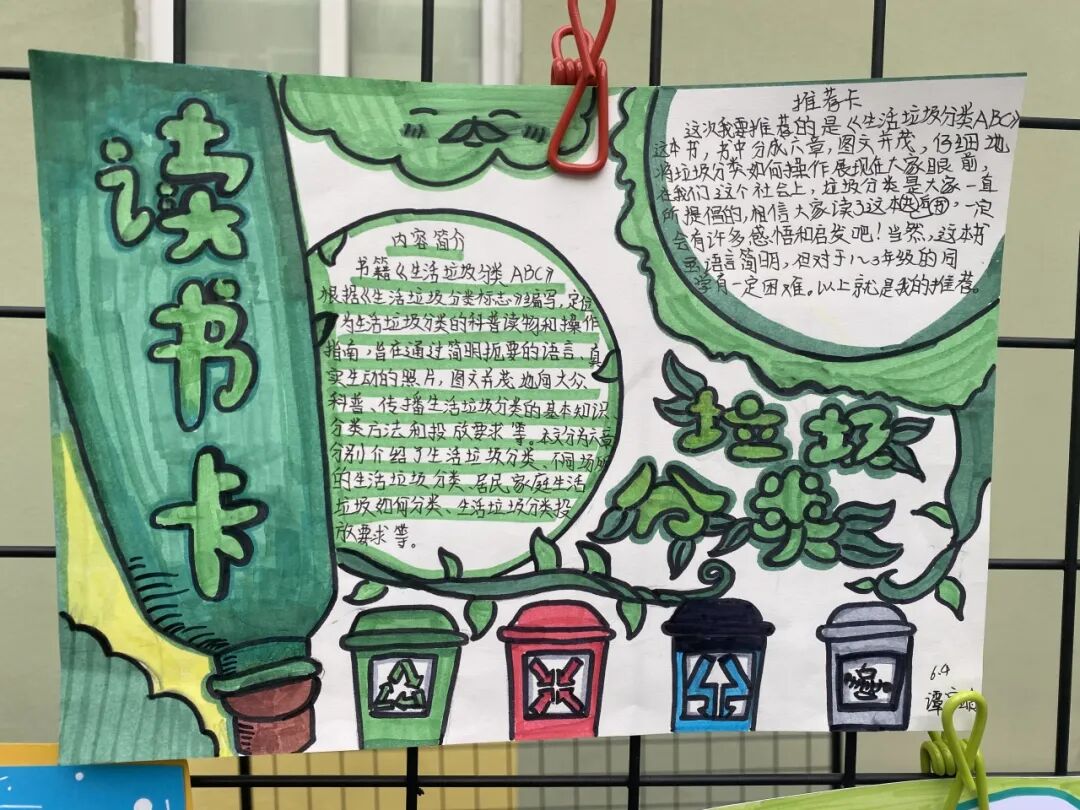 读书卡
内容简介
书籍《生活垃圾分类ABC》
根据《生活垃圾分类标志》编写，定位
为生活垃圾分类的科普读物和操作
指南，旨在通过简明扼要的语言、真
实生动的照片，图文并茂地向大众
科普、传播生活垃圾分类的基本知识、
分类方法和投放要求等。本文分为六章
分别介绍了生活垃圾分类、不同场所
的生活垃圾分类、居民家庭生活
垃圾如何分类、生活垃圾分类投
放要求等。
推荐卡
这次我要推荐的是《生活垃圾分类ABC》
这本书，书中分成六章，图文并茂，仔细地
将垃圾分类如何操作展现在大家眼前，
在我们这个社会上，垃圾分类是大家一直
所提倡的，相信大家读了这本，一定
会有许多感悟和启发吧！当然，这本书
语言简明，但对于1~3年级的同
学有一定困难。以上就是我的推荐。
垃圾
分类
6.4
谭